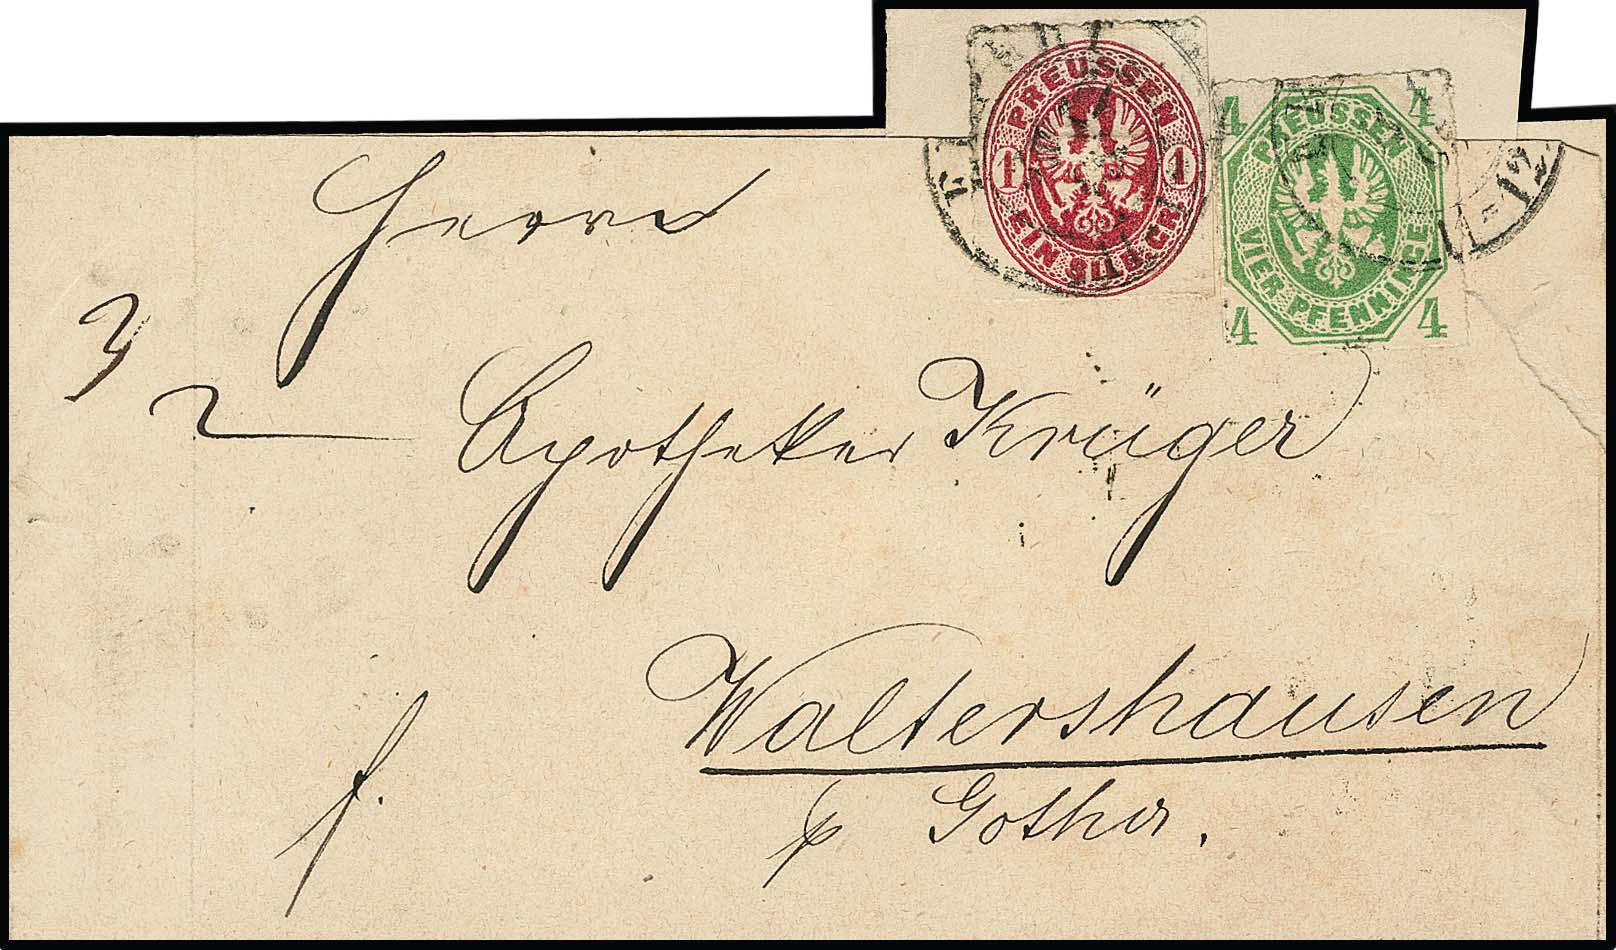 PREUSSEN
1 1
EIN SILB. GR.
4 4
PREUSSEN
VIER PFENNINGE
4 4
11-12
Herrn
3
2
Apotheker Krüger
Waltershausen
p Gotha.
f.